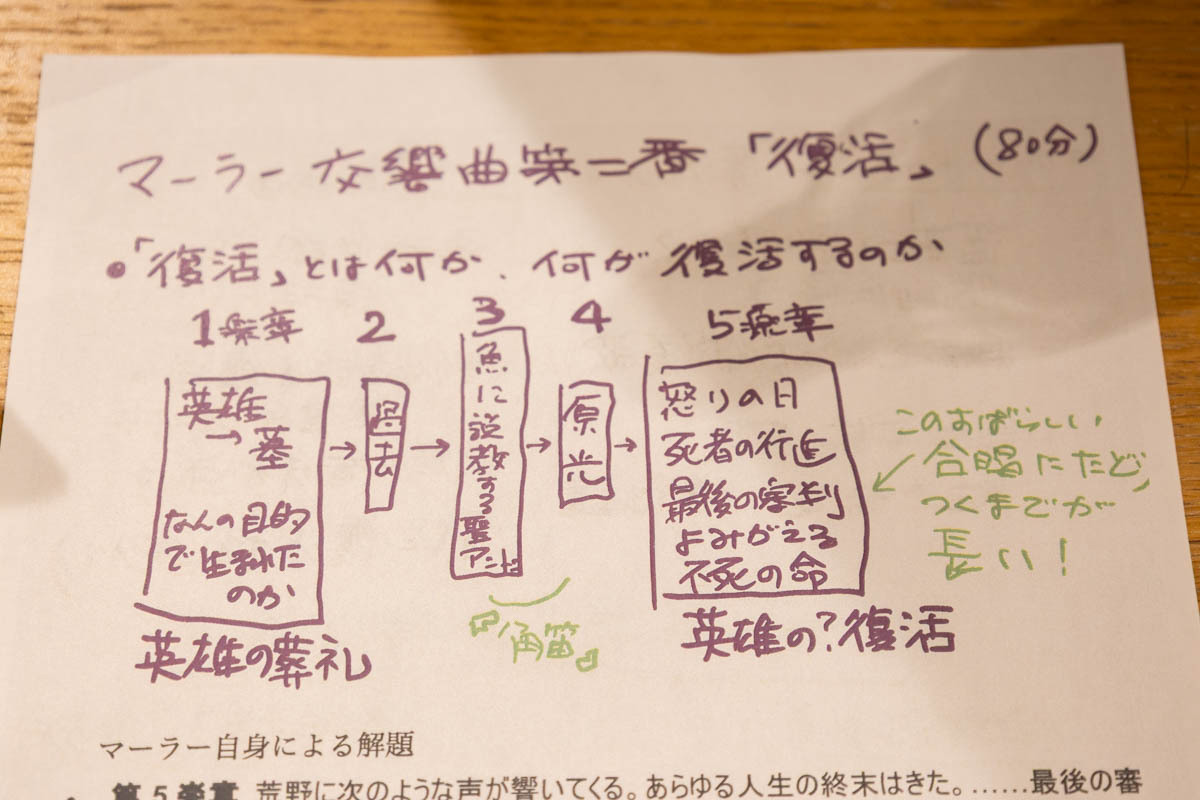 マーラー 交響曲第二番 「復活」 (80分)
●「復活」とは何か、何が復活するのか
1楽章 2 3 4 5楽章
英雄
→墓
なんの目的
で生まれた
のか
英雄の葬礼
→
過去
→
魚に説教する聖アントニ
→
原光
→
『角笛』
怒りの日
死者の行進
最後の審判
よみがえる
不死の命
英雄の?復活
このすばらしい
←合唱にたどり
つくまでが
長い!
マーラー自身による解題
・第5楽章 荒野に次のような声が響いてくる。あらゆる人生の終末はきた。……最後の審